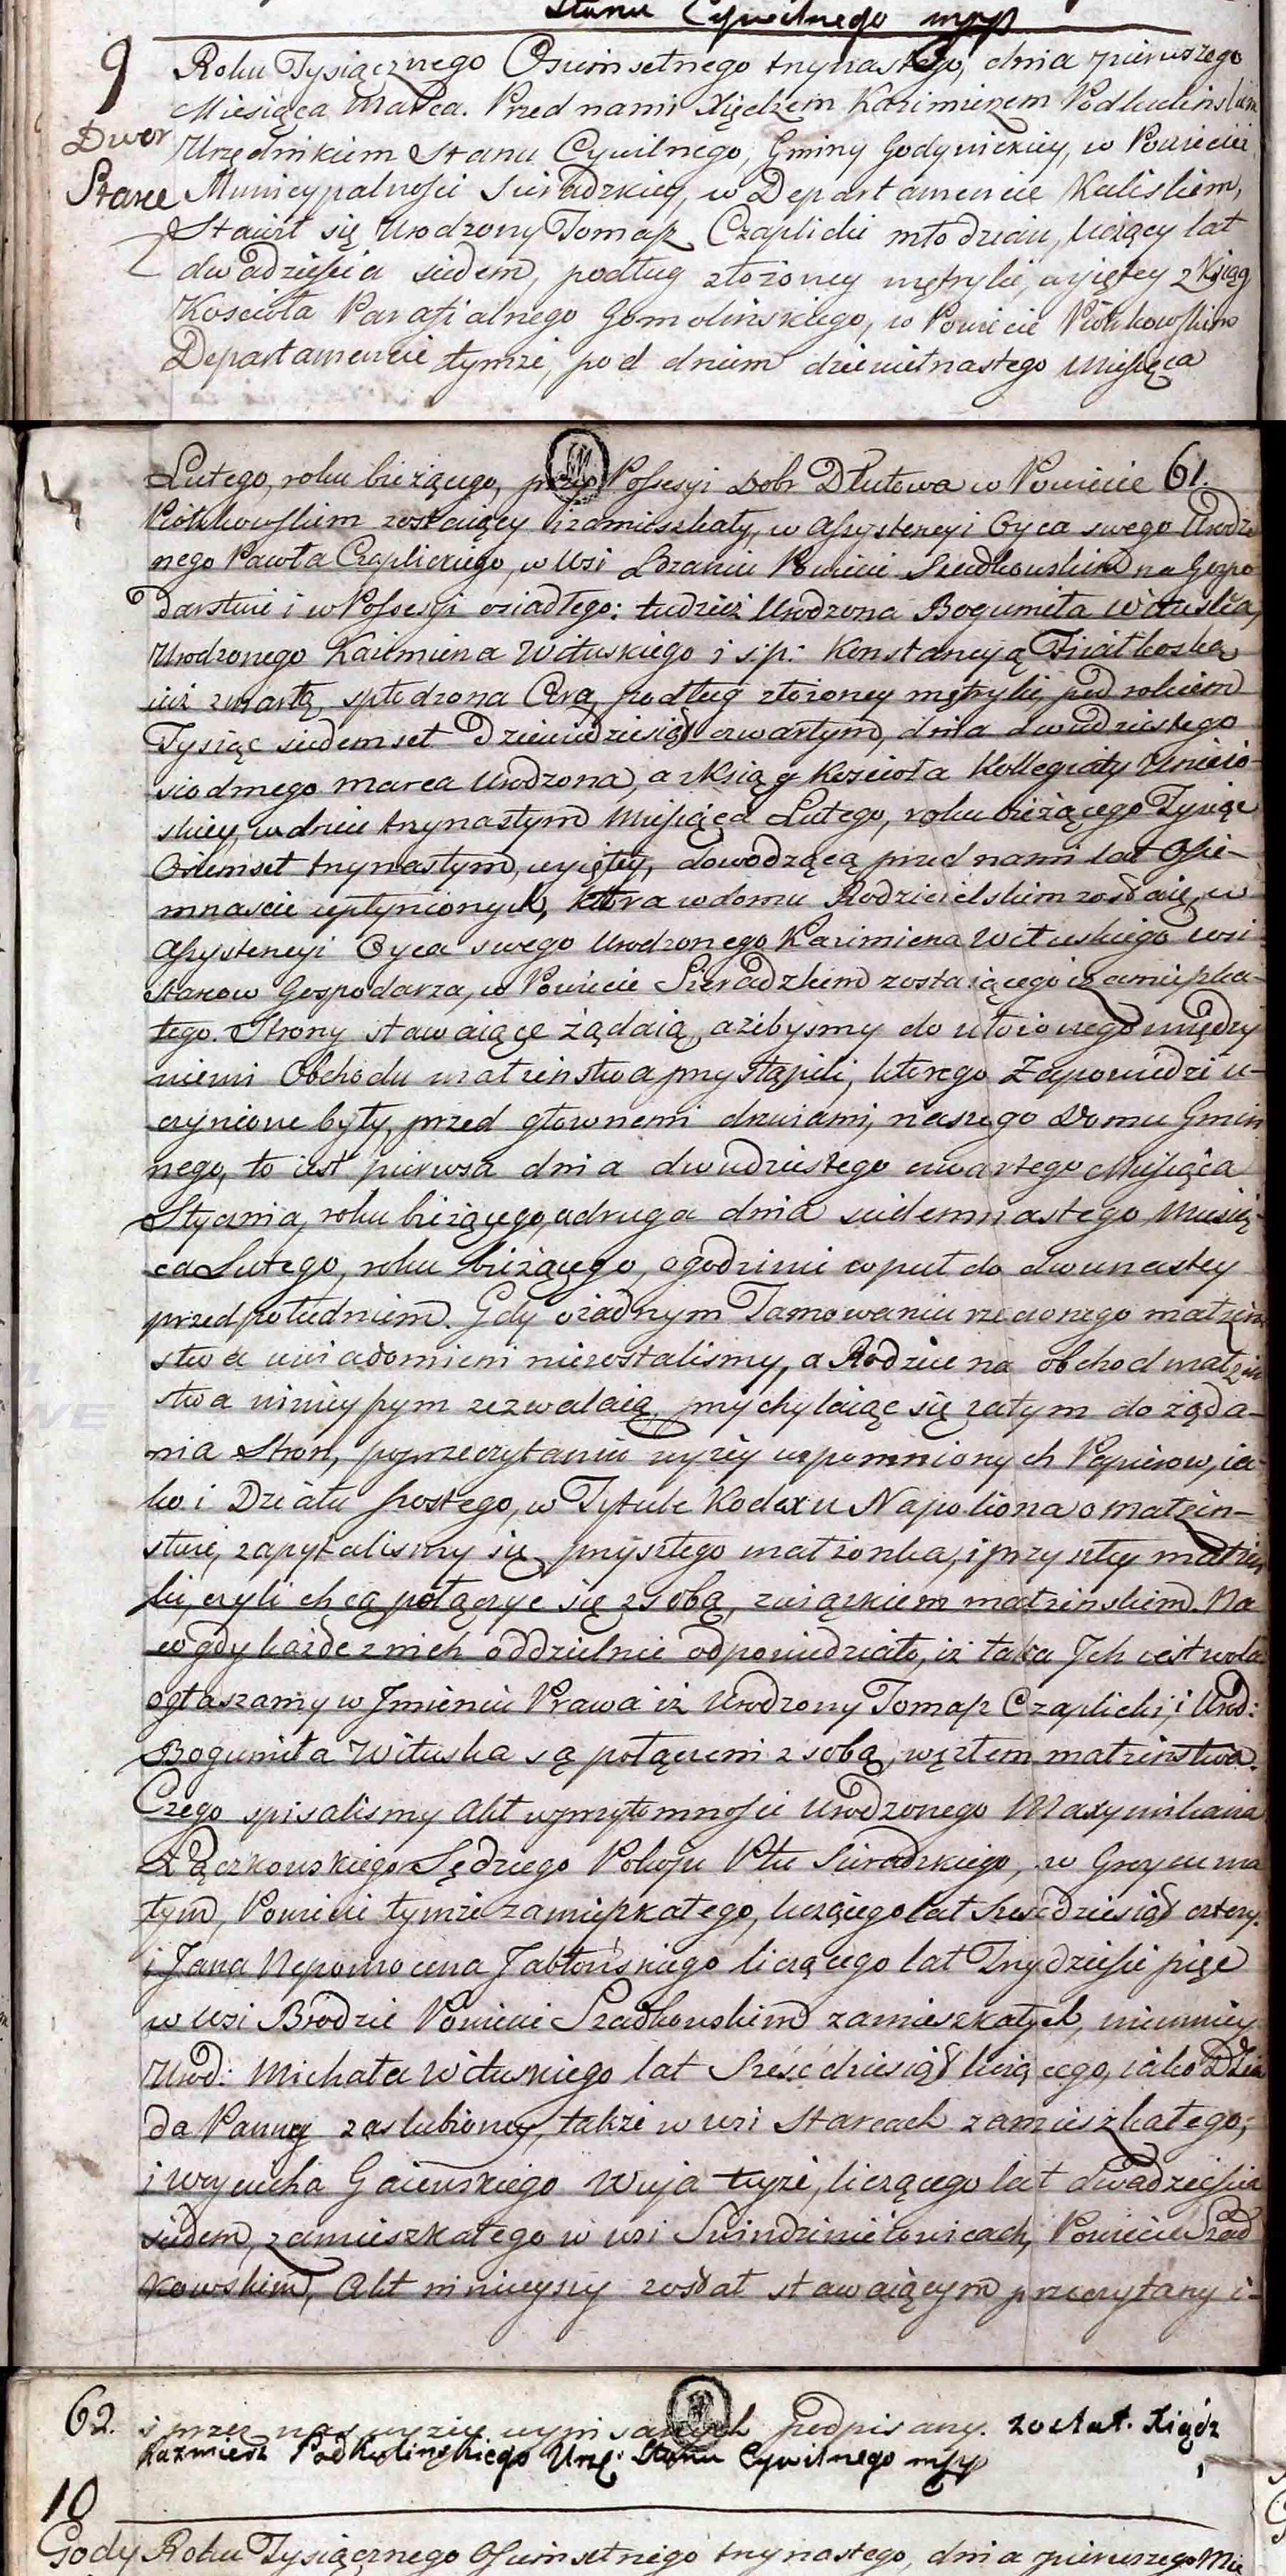 Stanu Cywilnego mpp
9
Roku Tysiącznego Osimsetnego trzynastego, dnia pierwszego
Miesiąca Marca. Przed nami Xiędzem Kazimierzem Podkulinskim
Dwor
Urzędnikiem Stanu Cywilnego, Gminy Godynickiey, w Powiecie
Starce
Municypalności Sieradzkiey, w Departamencie Kaliskiem,
Stawił się Urodzony Tomasz Czaplicki młodzian, liczący lat
dwadzieścia siedem, podług złożoney mętryki, wyiętey z Xiąg
Kościoła Parafialnego Gomolinskiego, w Powiecie Piotrkowskim
Departamencie tymże, pod dniem dziewiętnastego Miesiąca
61.
Lutego, roku bieżącego, przy Possesyi Dobr Dłutowa w Powiecie
Piotrkowskiem zostaiący i zamieszkały, w Assystencyi Oyca swego Urodzo
nego Pawła Czaplickiego, w Wsi Powiecie Szadkowskim na Gospo
darstwie i w Possesyi osiadłego: tudzież Urodzona Bogumiła Wituska,
Urodzonego Kazimierza Wituskiego i s:p: Konstancyą Fiiałkoską
iuż zmarłą, spłodzona Cora, podług złożoney mętryki, pod rokiem
Tysiąc siedemset Dziewiędziesiąt czwartym, dnia dwudziestego
siodmego marca Urodzona, a z Xiąg Kościoła Kollegiaty Unieio-
skiey, w dniu trzynastym Miesiąca Lutego, roku bieżącego Tysiąc
Osiemset trzynastym, wyiętey, dowodzącą przed nami lat Osie-
mnaście upłynionych, która w domu Rodzicielskim zostaię, w
Assystencyi Oyca swego Urodzonego Kazimierza Wituskiego wsi
Starcow Gospodarza, w Powiecie Sieradzkim zostaiącego i zamieszka-
łego. Strony stawaiące żądaią, ażebyśmy do ułożonego między
niemi Obchodu małżeństwa przystąpili, którego Zapowiedzi u-
czynione były, przed głownemi drzwiami, naszego Domu Gmin
nego, to iest pierwsza dnia dwudziestego czwartego Miesiąca
Stycznia, roku bieżącego, a druga dnia siedemnastego Miesią-
ca Lutego, roku bieżącego, o godzinie w puł do dwunastey
przed południem. Gdy o żadnym Tamowaniu rzeczonego małżeń
stwa uwiadomieni niezostalismy, a Rodzice na obchod małżeń
stwa ninieyszym zezwalaią, przychylaiąc się zatym do żąda-
nia Stron, po przeczytaniu wyżey wspomnionych Papierow, ia-
ko i Działu szostego, w Tytule Kodexu Napoliona o małżeń-
stwie, zapytalismy się przyszłego małżonka, i przyszłey małżon
ki, czyli chcą połączyc się z sobą, związkiem małżeńskiem. Na
co gdy każde z nich oddzielnie odpowiedziało, iż taka Ich iest wola
ogłaszamy w Imieniu Prawa iż Urodzony Tomasz Czaplicki, i Urod:
Bogumiła Wituska są połączeni z sobą, węzłem małżeństwa.
Czego spisalismy Akt w przytomności Urodzonego Maxymiliana
Łączkowskiego Sędziego Pokoju Ptu Sieradzkiego, w
tym, Powiecie tymże zamieszkałego, liczącego lat Szesćdziesiąt cztery,
i Jana Nepomocena Jabłońskiego liczącego lat Trzydzieści pięc
w wsi Brodzie Powiecie Szadkowskim zamieszkałych, niemniey
Urod: Michała Wituskiego lat Sześćdziesiąt liczącego, iako Dzia
da Panny zaslubioney, także w wsi Starcach zamieszkałego;
i Woyciecha Gaiewskiego Wuja teyże, liczącego lat dwadzieścia
siedem, zamieszkałego w wsi Powiecie Szad
kowskim, Akt ninieyszy został stawaiącym przeczytany i-
62.
i przez nas wyżey wym podpisany. został. Xiądz
Kazmierz Podkulinskiego Urzę: Stanu Cywilnego mpp
10
Gody
Roku Tysiącznego Osimsetnego trzynastego, dnia pierwszego Mie